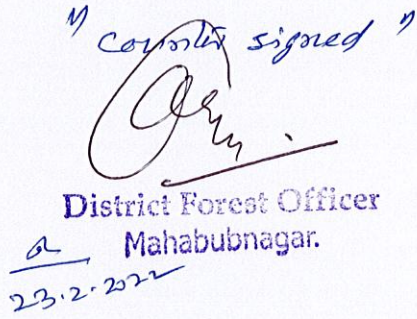 " counter signed "
District Forest Officer
Mahabubnagar.
23.2.2022